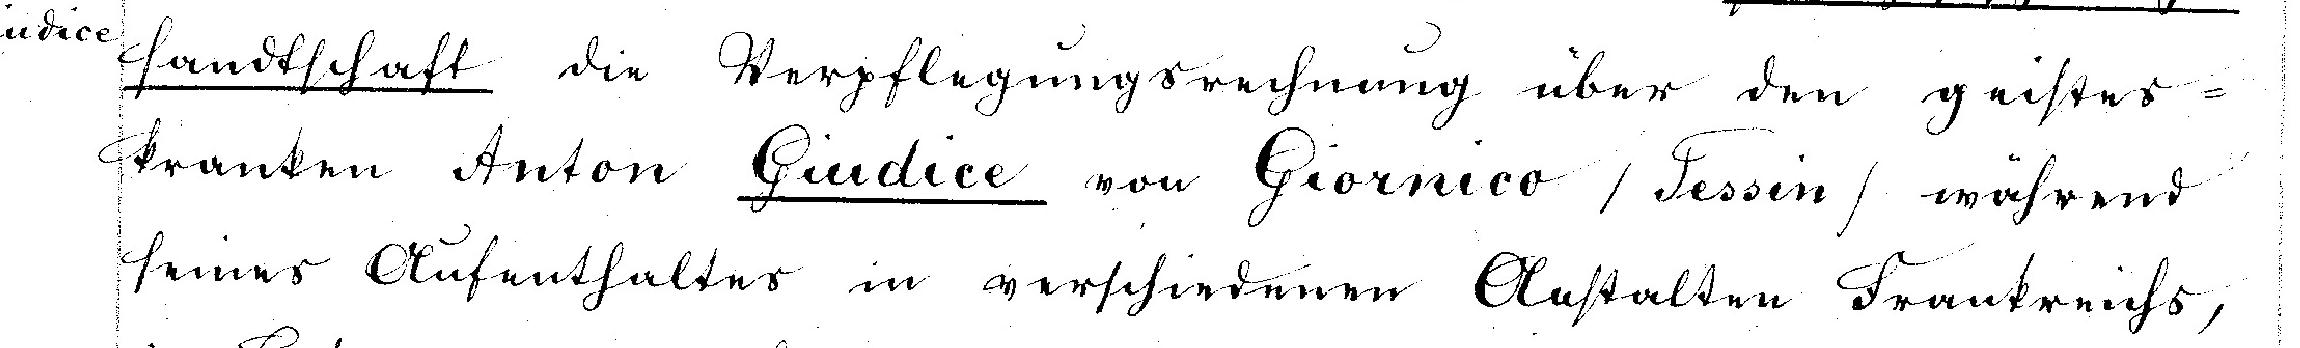 sandtschaft die Verpflegungsrechnung über den geistes=
kranken Anton Giudice von Giornico / Tessin / während
seines Aufenthaltes in verschiedenen Anstalten Frankreichs,